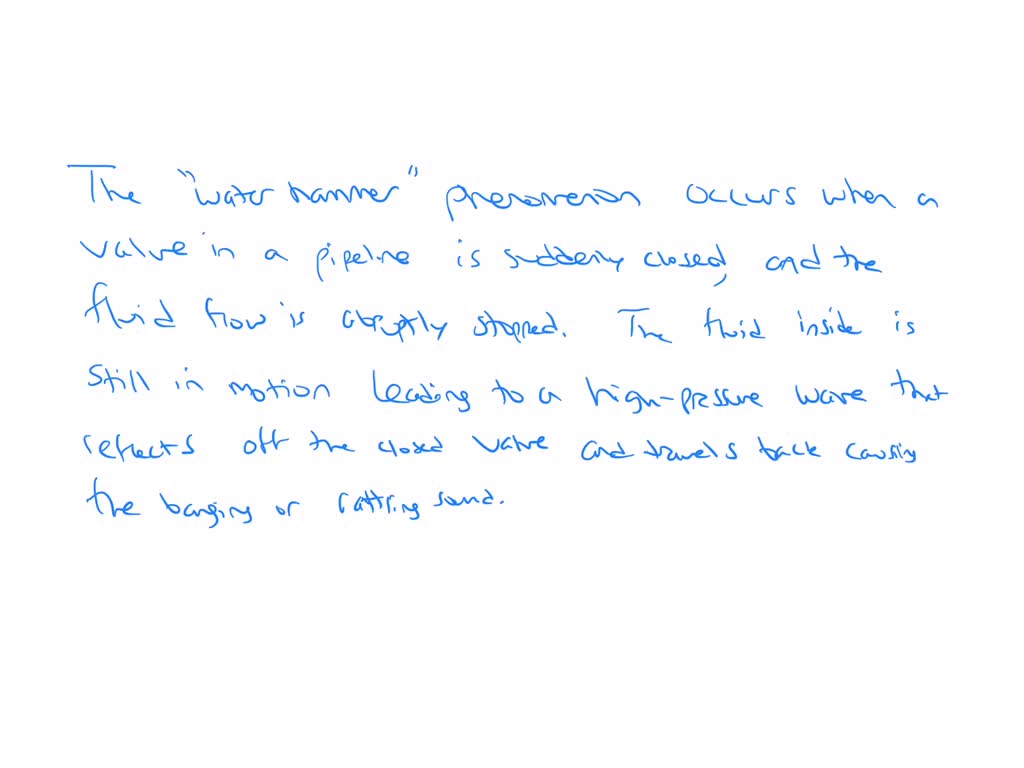 The "water hammer" phenomenon occurs when a
valve in a pipeline is suddenly closed, and the
fluid flow is abruptly stopped. The fluid inside is
still in motion leading to a high-pressure wave that
reflects off the closed valve and travels back causing
the banging or rattling sound.